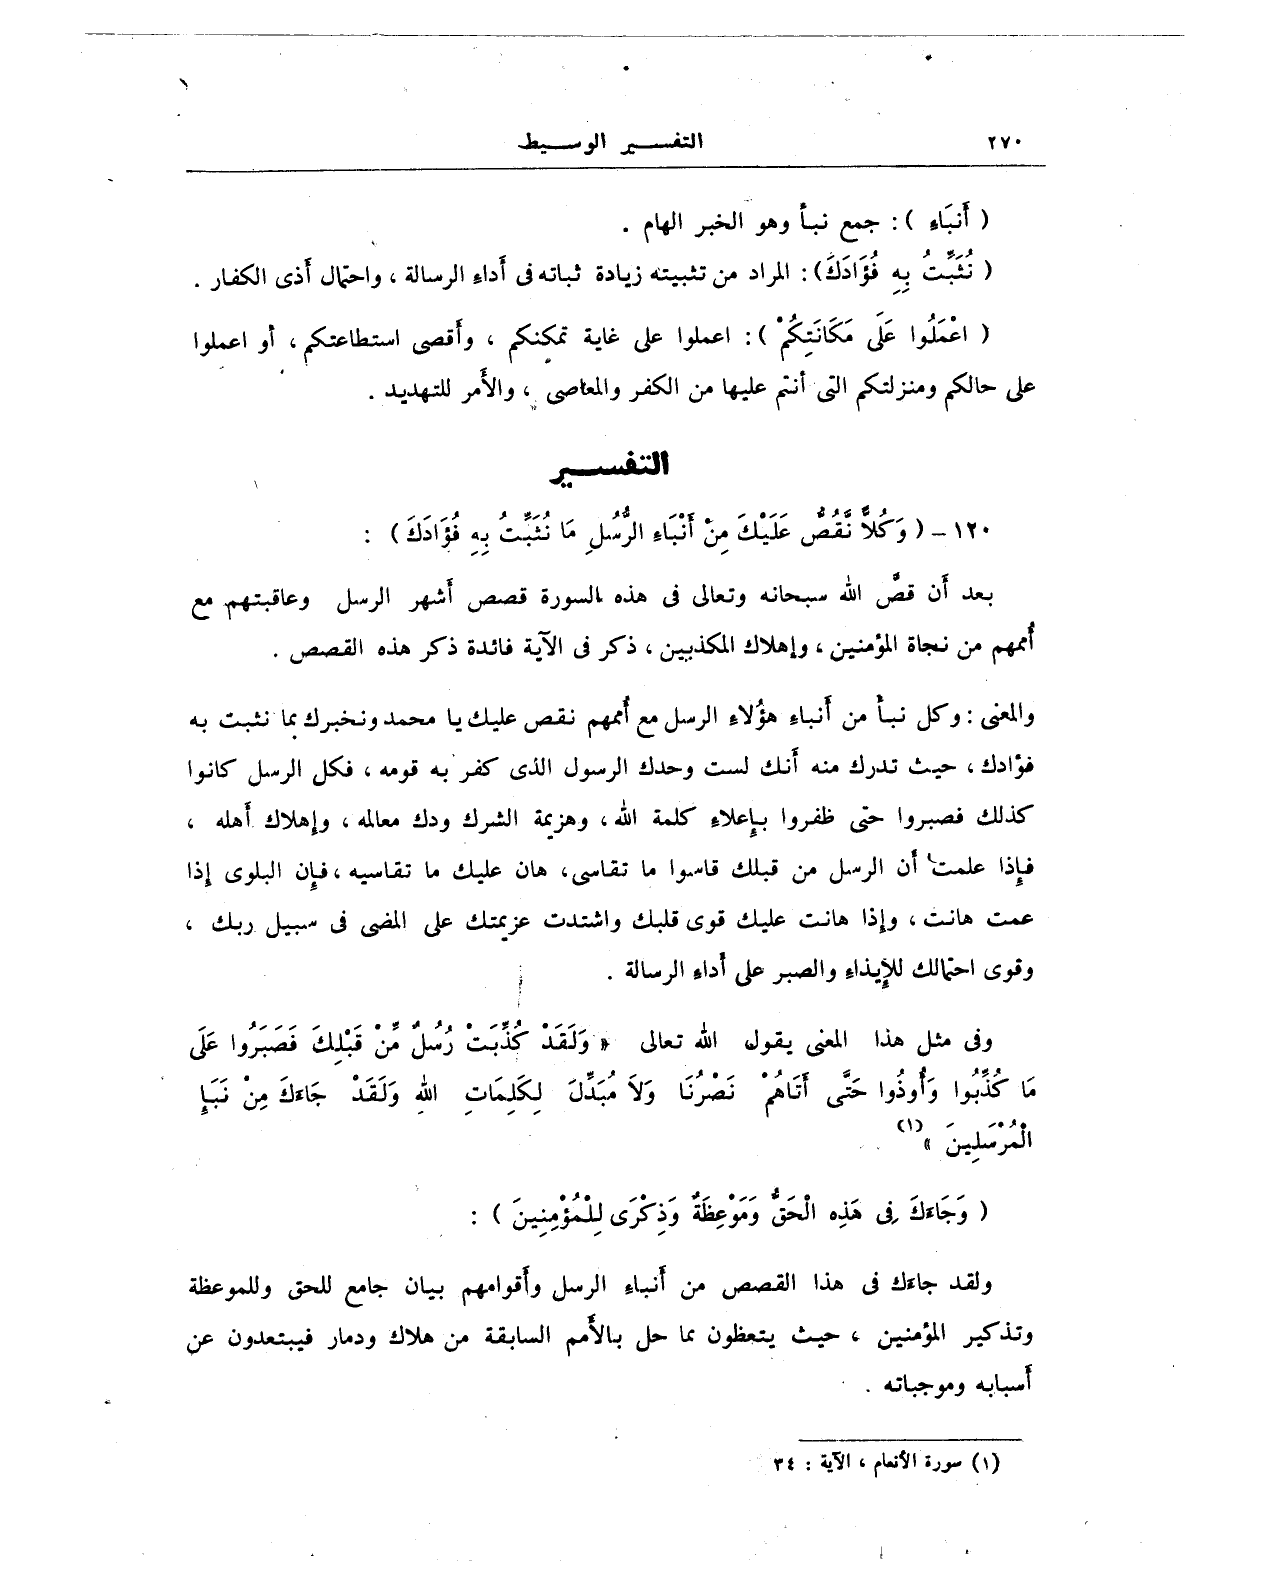 ٢٧٠
التفسير الوسيط
( أَنبَاءِ ) : جمع نبأ وهو الخبر الهام .
( نُثَبِّتُ بِهِ فُؤَادَكَ) : المراد من تثبيته زيادة ثباته فى أداء الرسالة ، واحتمال أذى الكفار .
( اعْمَلُوا عَلَى مَكَانَتِكُمْ ) : اعملوا على غاية تمكنكم ، وأقصى استطاعتكم ، أو اعملوا
على حالكم ومنزلتكم التى أنتم عليها من الكفر والمعاصى ، والأمر للتهديد .
التفسير
١٢٠ - ( وَكُلاًّ نَّقُصُّ عَلَيْكَ مِنْ أَنْبَاءِ الرُّسُلِ مَا نُثَبِّتُ بِهِ فُؤَادَكَ ) :
بعد أن قصَّ الله سبحانه وتعالى فى هذه السورة قصص أشهر الرسل وعاقبتهم مع
أُممهم من نجاة المؤمنين ، وإهلاك المكذبين ، ذكر فى الآية فائدة ذكر هذه القصص .
والمعنى : وكل نبأ من أنباء هؤلاء الرسل مع أُممهم نقص عليك يا محمد ونخبرك بما نثبت به
فؤادك ، حيث تدرك منه أنك لست وحدك الرسول الذى كفر به قومه ، فكل الرسل كانوا
كذلك فصبروا حتى ظفروا بإعلاء كلمة الله ، وهزيمة الشرك ودك معالمه ، وإهلاك أهله ،
فإذا علمت أن الرسل من قبلك قاسوا ما تقاسى، هان عليك ما تقاسيه ، فإن البلوى إذا
عمت هانت ، وإذا هانت عليك قوى قلبك واشتدت عزيمتك على المضى فى سبيل ربك ،
وقوى احتمالك للإيذاء والصبر على أداء الرسالة .
وفى مثل هذا المعنى يقول الله تعالى « وَلَقَدْ كُذِّبَتْ رُسُلٌ مِّنْ قَبْلِكَ فَصَبَرُوا عَلَى
مَا كُذِّبُوا وَأُوذُوا حَتَّى أَتَاهُمْ نَصْرُنَا وَلاَ مُبَدِّلَ لِكَلِمَاتِ اللهِ وَلَقَدْ جَاءَكَ مِنْ نَبَإِ
الْمُرْسَلِينَ » (١)
( وَجَاءَكَ فِى هَذِهِ الْحَقُّ وَمَوْعِظَةٌ وَذِكْرَى لِلْمُؤْمِنِينَ ) :
ولقد جاءك فى هذا القصص من أنباء الرسل وأقوامهم بيان جامع للحق وللموعظة
وتذكير المؤمنين ، حيث يتعظون بما حل بالأُمم السابقة من هلاك ودمار فيبتعدون عن
أسبابه وموجباته .
(١) سورة الأنعام ، الآية : ٣٤